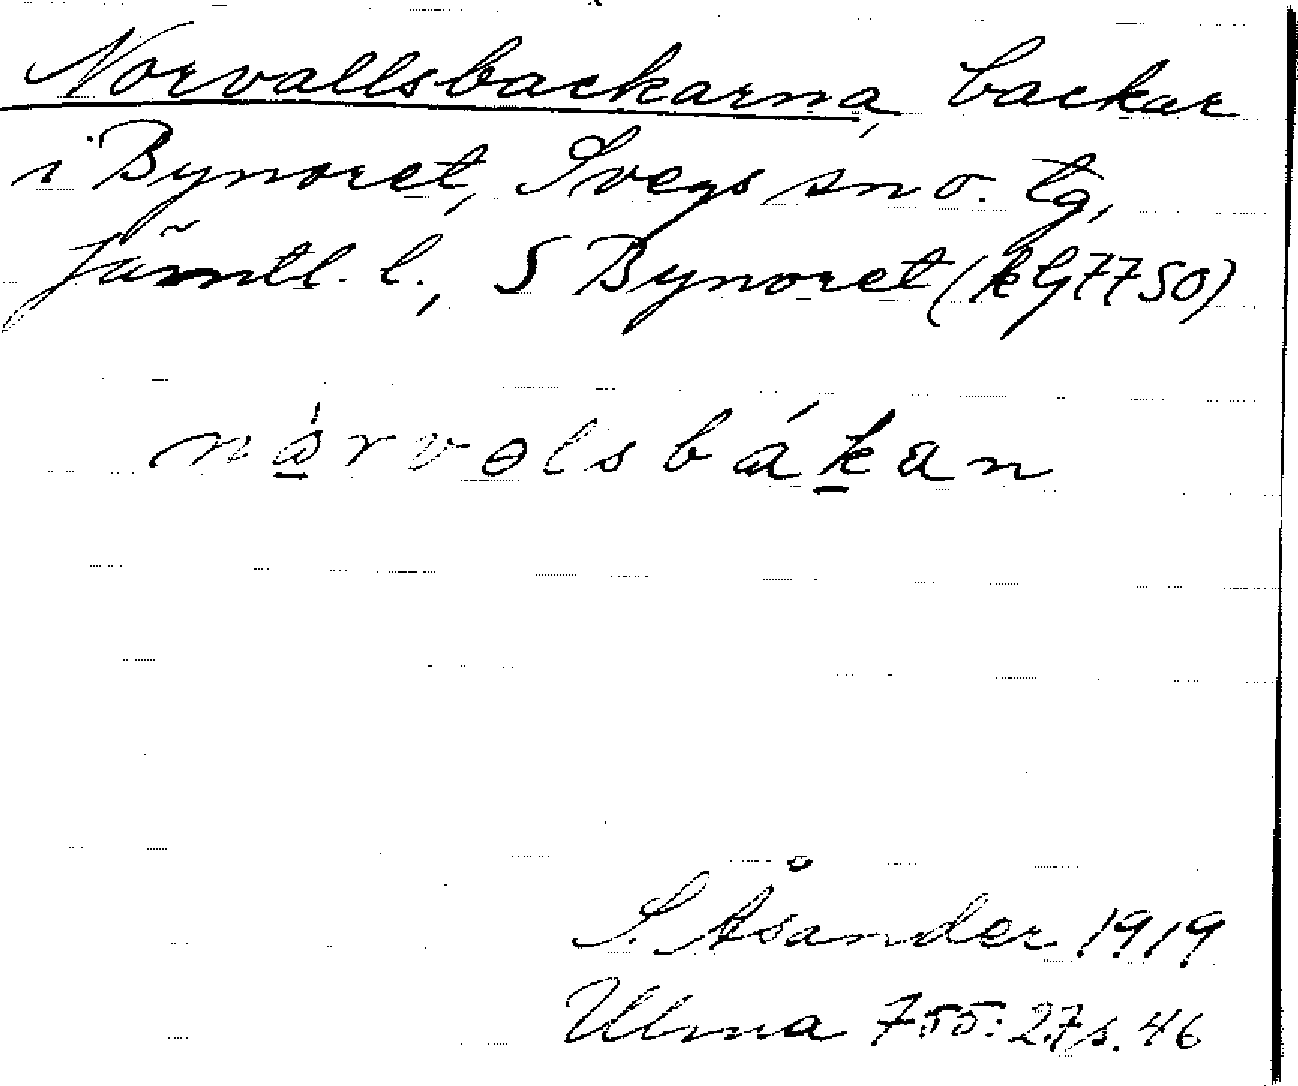 Norvallsbackarna, backar
i Bynoret, Svegs sn o. tg,
Jämtl. l., S Bynoret (kG7750)
nårvɵlsbákan
S. Åsander 1919
Ulma 755:27 s. 46